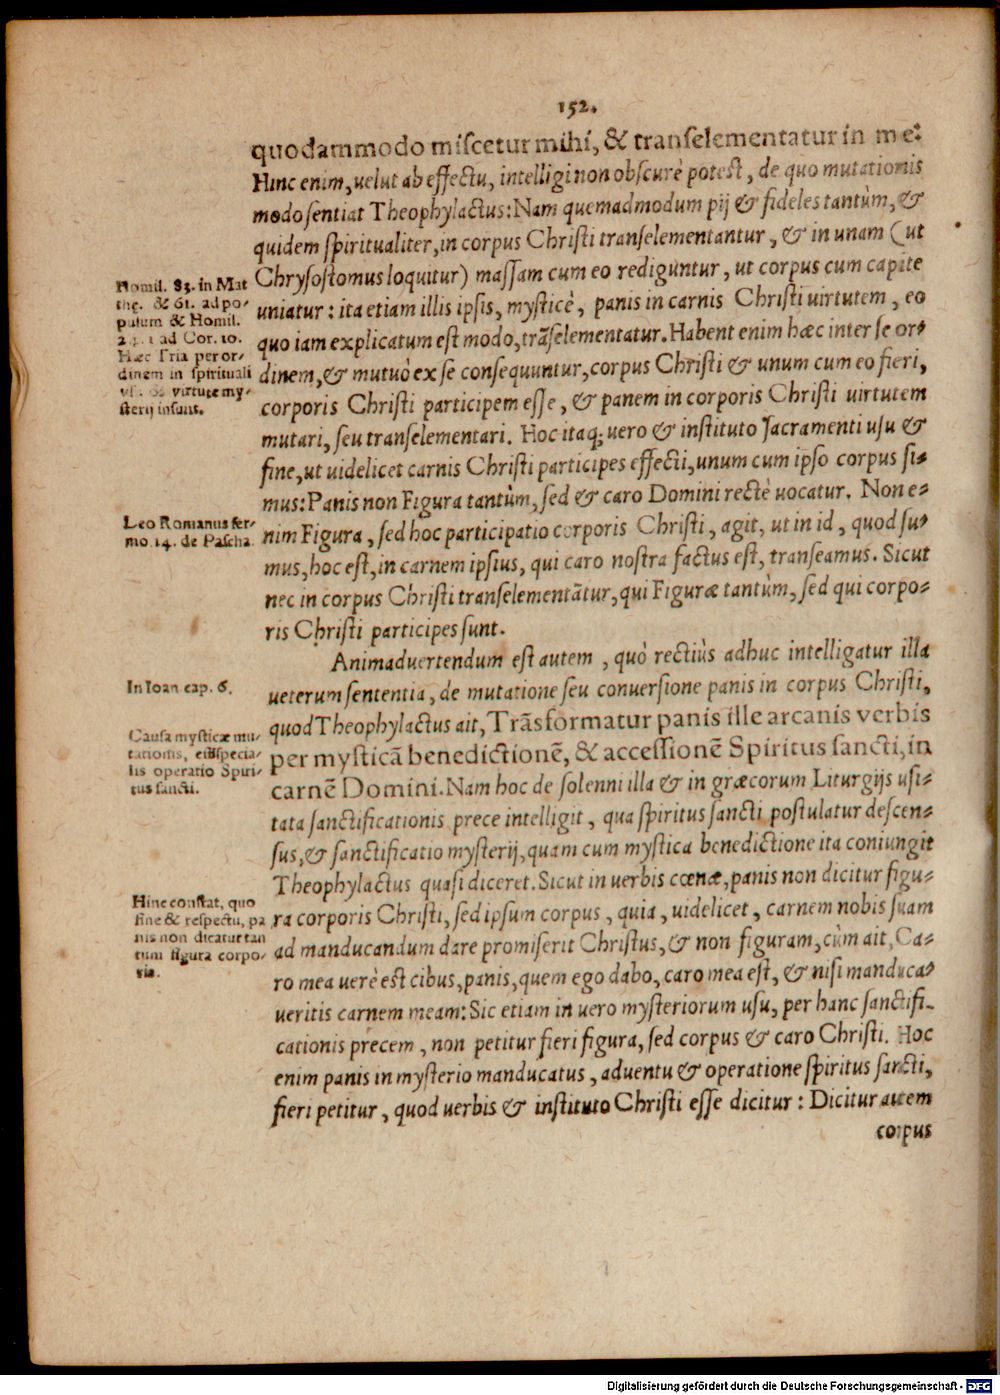 152.
quodammodo miscetur mihi, & transelementatur in me:
Hinc enim, uelut ab effectu, intelligi non obscurè potest, de quo mutationis
modo sentiat Theophylactus: Nam quemadmodum pij & fideles tantùm, &
quidem spiritualiter, in corpus Christi transelementantur, & in unam (ut
Chrysostomus loquitur) massam cum eo rediguntur, ut corpus cum capite
uniatur: ita etiam illis ipsis, mysticè, panis in carnis Christi uirtutem, eo
quo iam explicatum est modo, trãselementatur. Habent enim hæc inter se or-
dinem, & mutuò ex se consequuntur, corpus Christi & unum cum eo fieri,
corporis Christi participem esse, & panem in corporis Christi uirtutem
mutari, seu transelementari. Hoc itaq; uero & instituto sacramenti usu &
fine, ut uidelicet carnis Christi participes effecti, unum cum ipso corpus si-
mus: Panis non Figura tantùm, sed & caro Domini rectè uocatur. Non e-
nim Figura, sed hoc participatio corporis Christi, agit, ut in id, quod su-
mus, hoc est, in carnem ipsius, qui caro nostra factus est, transeamus. Sicut
nec in corpus Christi transelementãtur, qui Figuræ tantùm, sed qui corpo-
ris Christi participes sunt.
Homil. 83. in Mat
the. & 61. ad po-
pulum & Homil.
24. 1 ad Cor. 10.
Hæc Tria per or-
dinem in spirituali
usu & virtute my-
sterij insunt.
Leo Romanus ser-
mo 14. de Pascha.
Animaduertendum est autem, quò rectiùs adhuc intelligatur illa
ueterum sententia, de mutatione seu conuersione panis in corpus Christi,
quod Theophylactus ait, Trãsformatur panis ille arcanis verbis
per mysticã benedictionẽ, & accessionẽ Spiritus sancti, in
carnẽ Domini. Nam hoc de solenni illa & in græcorum Liturgijs usi-
tata sanctificationis prece intelligit, qua spiritus sancti postulatur descen-
sus, & sanctificatio mysterij, quam cum mystica benedictione ita coniungit
Theophylactus quasi diceret. Sicut in uerbis cœnæ, panis non dicitur figu-
ra corporis Christi, sed ipsum corpus, quia, uidelicet, carnem nobis suam
ad manducandum dare promiserit Christus, & non figuram, cùm ait, Ca-
ro mea uerè est cibus, panis, quem ego dabo, caro mea est, & nisi manduca-
ueritis carnem meam: Sic etiam in uero mysteriorum usu, per hanc sanctifi-
cationis precem, non petitur fieri figura, sed corpus & caro Christi. Hoc
enim panis in mysterio manducatus, aduentu & operatione spiritus sancti,
fieri petitur, quod uerbis & instituto Christi esse dicitur: Dicitur autem
corpus
In Ioan cap. 6.
Causa mysticæ mu-
tationis, eiusspecia-
lis operatio Spiri-
tus sancti.
Hinc constat, quo
fine & respectu, pa
nis non dicatur tan
tum figura corpo-
ris.
Digitalisierung gefördert durch die Deutsche Forschungsgemeinschaft - DFG